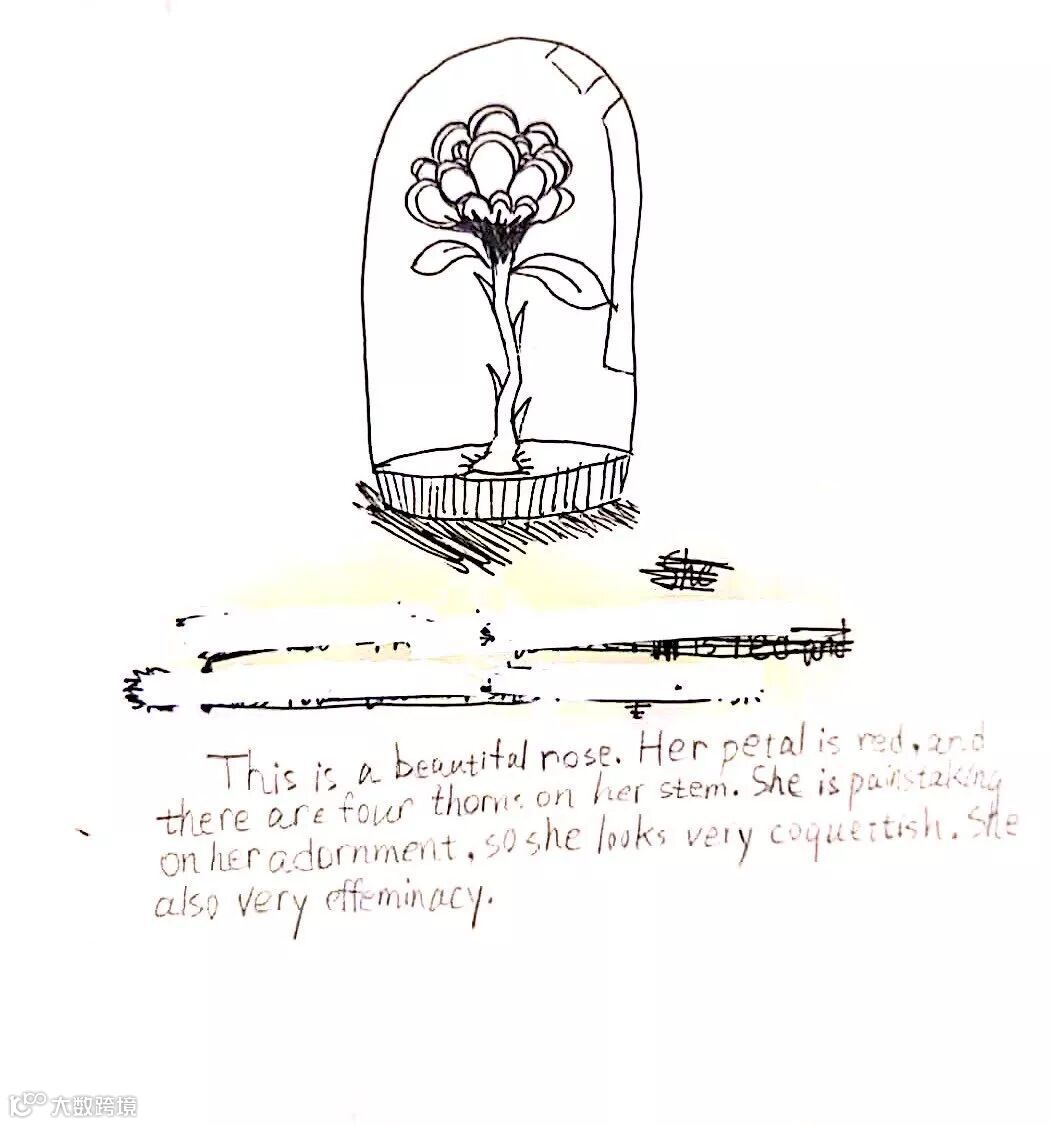 She
is red and
This is a beautiful rose. Her petal is red, and
there are four thorns on her stem. She is painstaking
on her adornment, so she looks very coquettish. She
also very effeminacy.
大数跨境